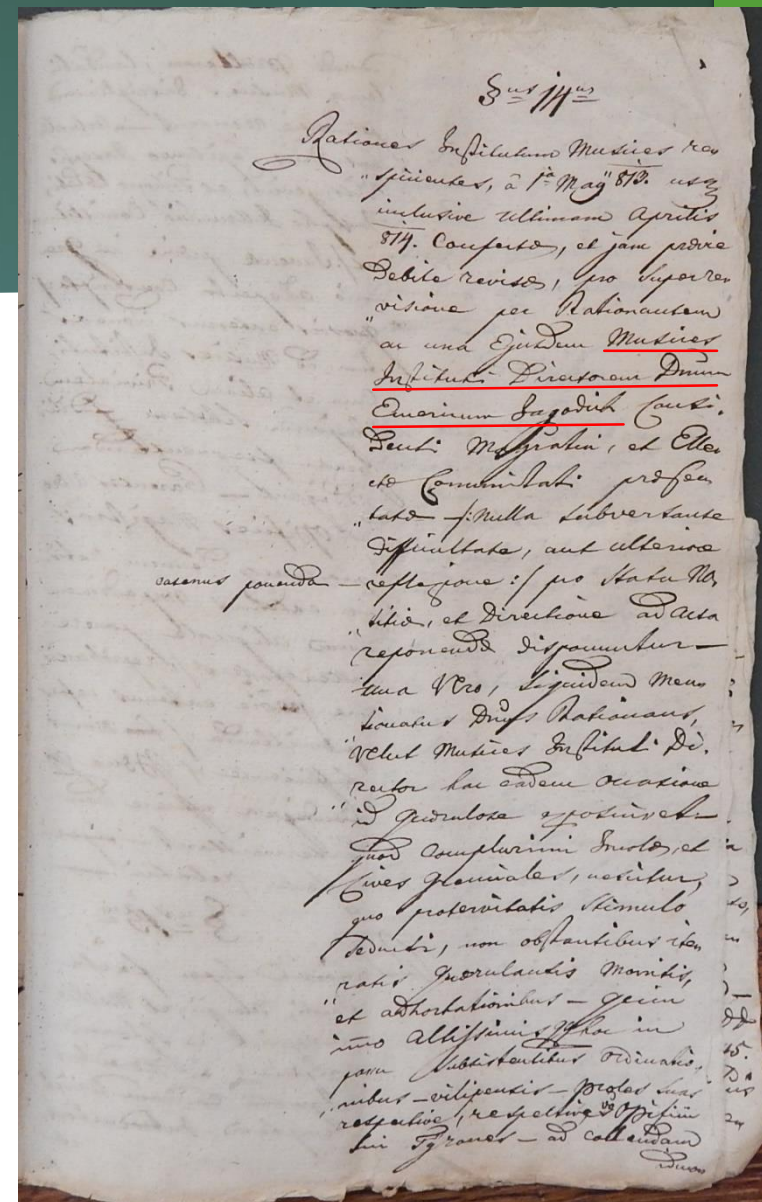 §us 14us
Rationes Institutum Musices re„
„spicientes, â 1a May 813. usq
inclusive ultimam Aprilis
814. Confectæ, et jam prævie
Debite revisæ, pro superre„
„visione per Rationantem
ac una Ejusdem Musices
Instituti Directorem Dnum
Emericum Jagodich Consi„
denti Mgratui, et Elle„
ctæ Communitati præsen„
„tatæ –/: Nulla subversante
difficultate, aut ulteriore
eatenus ponenda – reflexione :/ pro Statu No„
„titiæ, et Directione ad acta
reponendæ disponuntur –
una Vero, siquidem men„
„tionatus Dnus Rationans,
velut Musices Instituti Di„
rector hac eadem occasione
„id quærulose exposuisset –
quod complurimi Incolæ, et
Cives Gremiales, nescitur,
quo protervitatis stimulo
seducti, non obstantibus ite„
ratis Quærulantis Monitis,
„et adhortationibus – quin
imo Altissimis in hoc
passu subsistentibus ordinatio„
„nibus – vilipensis – proles suas
respective, respective vo Opificii
sui Tyrones – ad